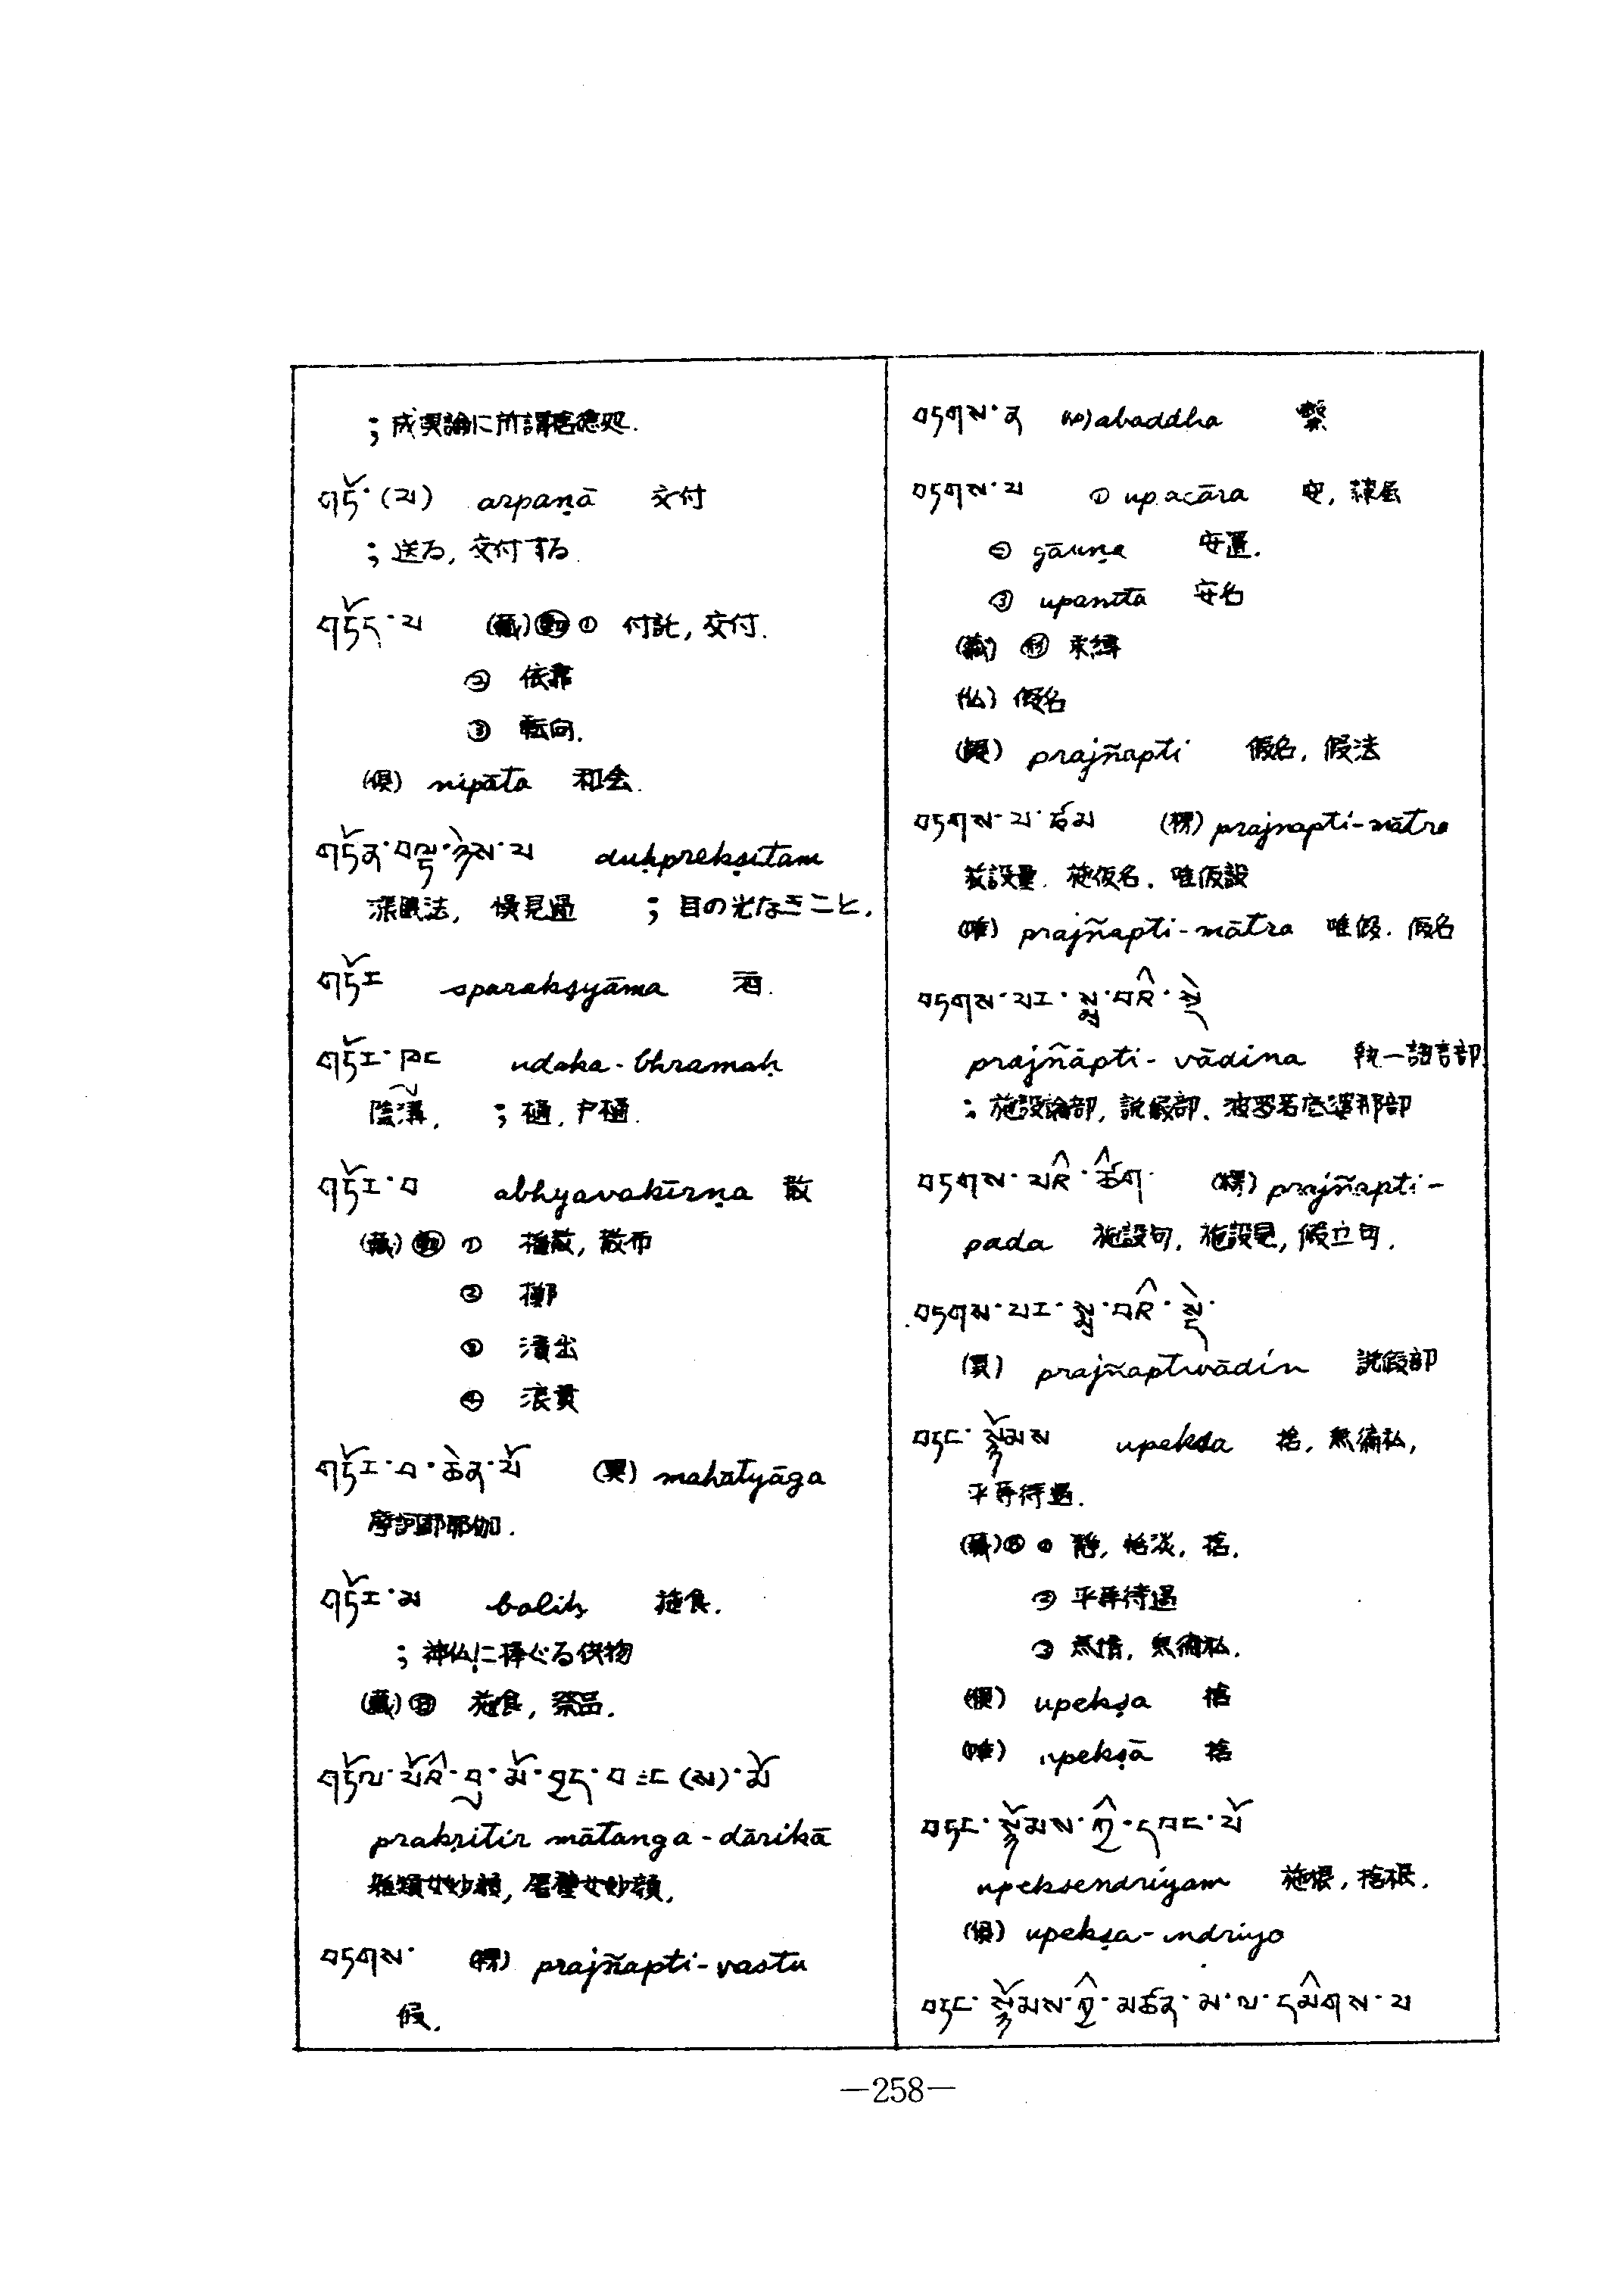 ; 成実論に所謂捨德処.
གཏོ་(པ) arpaṇā 交付
; 送る, 交付する.
གཏོད་པ (蔵) ① 付託, 交付.
② 依靠
③ 転向.
(倶) nipāta 和会.
གཏོན་བལྟ་ཉེས་པ duḥprekṣitam
; 目の光なきこと.
གཏོར sparakṣyāma 洒.
གཏོར་ཁང udaka-bhramaḥ
陰溝, ; 樋, 戸樋.
གཏོར་བ abhyavakīrṇa 散
(蔵) ① 播散, 散布
② 擲
③ 潰出
④ 浪費
གཏོར་བ་ཆེན་པོ (翼) mahātyāga
摩訶耶伽.
གཏོར་མ baliḥ 施食.
; 神仏に捧ぐる供物
(蔵) 施食, 祭品.
གཏོལ་པོའི་བུ་མོ་བྱད་བ ང (མ)་མོ
prakṛitir mātanga-dārikā
བཏགས་ prajñapti-vastu
假.
བཏགས་ན abaddha 繋
བཏགས་པ ① upacāra 隷属
② gāuṇa 安置.
③ upanīta 安名
(蔵) 束縛
(仏) 假名
prajñapti 假名, 假法
བཏགས་པ་ཙམ prajnapti-mātra
施設量. 施仮名. 唯仮設
(唯) prajñapti-mātra 唯假. 假名
བཏགས་པར་སྨྲ་བའི་སྡེ
prajñāpti-vādina 執一語言部
; 施設論部, 説假部. 波羅若底婆那部
བཏགས་པའི་ཚིག་ prajñapti-
pada 施設句. 施設見, 假立句.
བཏགས་པར་སྨྲ་བའི་སྡེ་
(翼) prajñaptivādin 説假部
བཏང་སྙོམས upekṣa 捨, 無偏私,
平等待遇.
(蔵) ① 静, 恬淡, 捨.
② 平等待遇
③ 無情, 無偏私.
(倶) upekṣa 捨
(唯) upekṣā 捨
བཏང་སྙོམས་ཀྱི་དབང་པོ
upeksendriyam 施根, 捨根.
(倶) upekṣa-indriyo
བཏང་སྙོམས་ཀྱི་མཚན་མ་ལ་དམིགས་པ
—258—